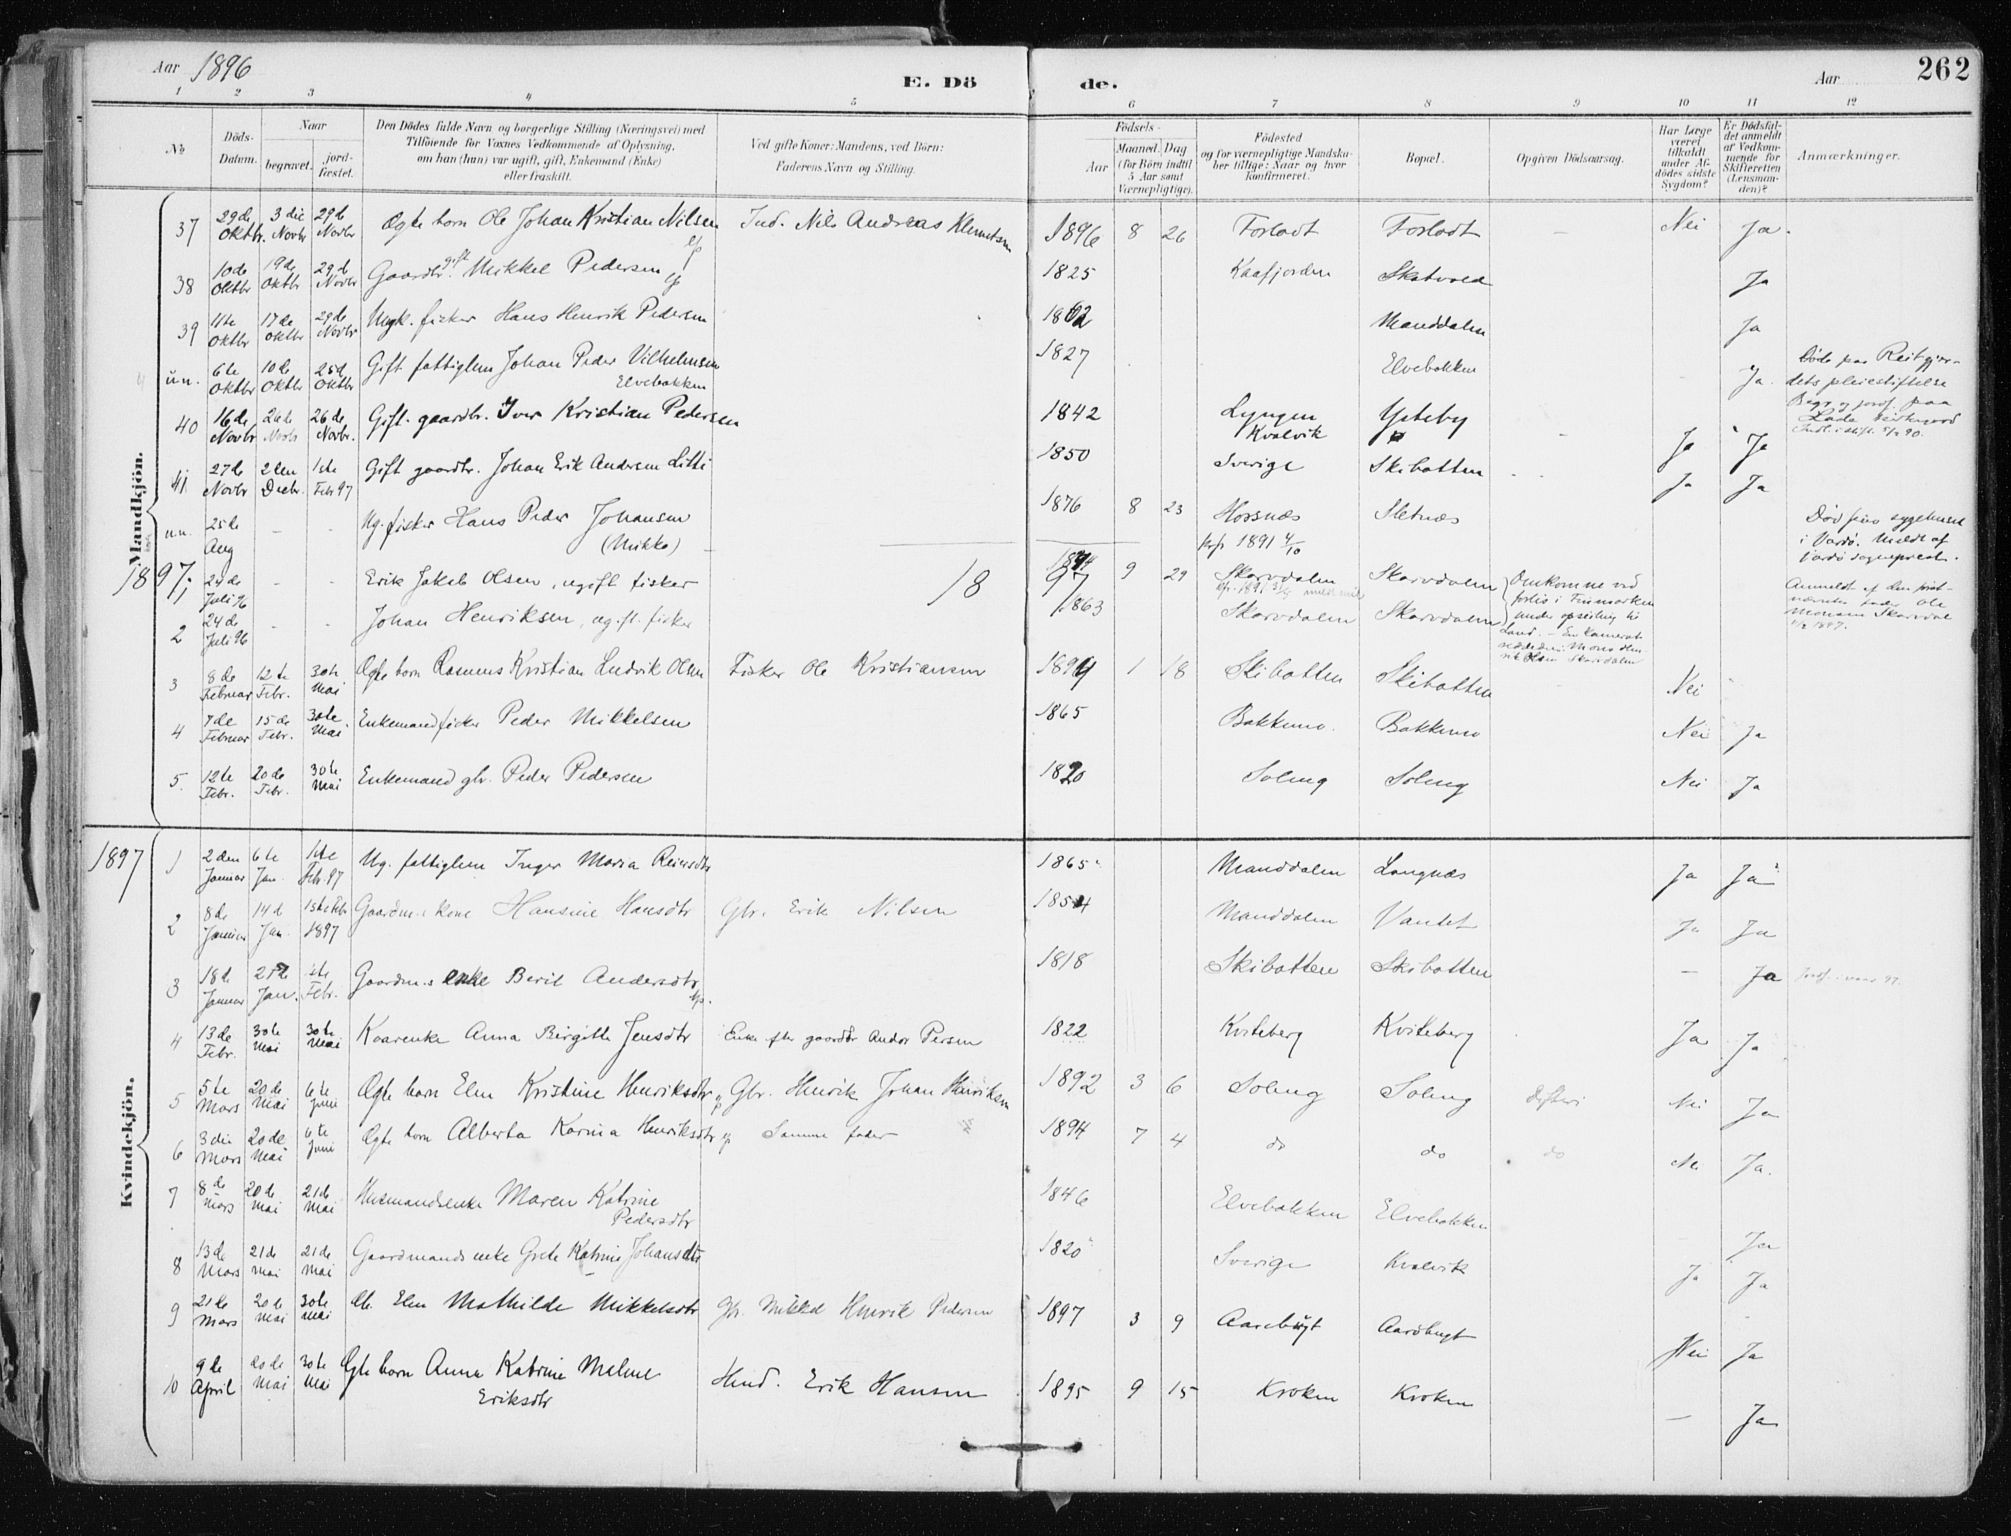 Aar 1896 E. Dö de. Aar 262
1 2 3 4 5 6 7 8 9 10 11 12
№ Döds-Datum. Naar begravet. jordfæstet. Den Dödes fulde Navn og borgerlige Stilling (Næringsvei) med Tilföiende for Voxnes Vedkommende af Oplysning, om han (hun) var ugift, gift, Enkemand (Enke) eller fraskilt. Ved gifte Koner: Mandens, ved Börn: Faderens Navn og Stilling. Födsels- Aar Maaned. Dag (for Börn indtil 5 Aar samt Værnepligtige). Födested og for værnepligtige Mandskaber tillige: Naar og hvor konfirmeret. Bopæl. Opgiven Dödsaarsag. Har Læge været tilkaldt under Afdödes sidste Sygdom? Er Dödsfaldet anmeldt af Vedkommende for Skifteretten (Lensmanden)? Anmærkninger.
Mandkjön.
37 29de Oktbr. 3die Novbr 29de Novbr Ægte barn Ole Johan Kristian Nilsen Ind. Nils Andreas Klemetsen 1896 8 26 Forladt Forladt – Nei Ja.
38 10de Oktbr 19de Oktbr 29de Novbr Gaardbr. gift Mikkel Pedersen 1825 Kaafjorden Skatvold Ja
39 11te Oktbr 17de Oktbr 29de Novbr Ungk. fisker Hans Henrik Pedersen Manddalen Ja
un. 6te Oktbr 10de Oktbr 25de Oktbr Gift fattiglem Johan Peder Vilhelmsen Elvebakken 1827 Elvebakken Ja. Døde paa Reitgjerdets pleiestiftelse Begr. og jordf. paa Lade
40 16de Novbr 26te Novb 26de Novbr. Gift. gaardbr. Iver Kristian Pedersen 1842 Lyngen Kvalvik Ytteby – Ja Ja
41. 27de Novbr 2den Decbr. 1ste Febr 97 Gift gaardbr. Johan Erik Andersen Litti 1850 Sverige Skibotten Ja Ja
un. 25de Aug – – Ug. fisker Hans Peder Johansen (Mikko) 1876 8 23 Horsnæs Konf. 1891 4/10 Sletnæs Død paa sygehuset i Vardø. Meldt af Vardø sogneprest.
1897. 1897
1 24de Juli 96 – – Erik Jakob Olsen, ugift fisker 9 29 Skarvdalen Skarvdalen Omkomne ved forlis i Finmarken under opseiling til Land. – En kamerat Anmeldt af den først-nævntes fader Ole Monsen Skarvdal 1897.
2 24de Juli 96 – – Johan Henriksen, ugift. fisker 1863 Skarvdalen Skarvdalen
3 8de Februar 12te Febr. 30te Mai Ægte barn Rasmus Kristian Ludvik Olsen Fisker Ole Kristiansen 1894 1 18 Skibotten Skibotten – Nei
4 7de Februar 15de Febr. 30te Mai Enkemand fisker Peder Mikkelsen 1865 Bakkemo. Bakkemo Nei Ja
5. 12te Febr. 20de Febr. 30te Mai Enkemand gbr. Peder Pedersen 1820 Soleng Soleng Nei Ja
1897
Kvindekjön.
1 2den Januar 6te Jan. 1ste Febr. 97 Ug. fattiglem Inger Maria Reiersdtr 1865 Manddalen Langnæs Ja Ja
2 8de Januar 14d Jan. 1ste Febr 1897 Gaardm.s kone Hansine Hansdtr Gbr. Erik Nilsen 1854 Manddalen Vantet Ja Ja
3 18de Januar 21de Jan. 1ste Febr. Gaardm.s enke Beril Andersdtr 1818 Skibotten Skibotten – Ja
4 13de Febr. 30te Mai 30te Mai Kaarenke Anna Birgitte Jensdtr Enke efter gaardbr Ander Persen 1822 Kviteberg Kviteberg Ja Ja
5 5te Mars 20de Mai 6te Juni Ægte barn Elen Kristine Henriksdtr Gbr. Henrik Johan Henriksen 1892 3 6 Soleng Soleng difteri Nei Ja
6 3die Mars 20de Mai 6te Juni Ægte barn Alberta Karina Henriksdtr Samme fader 1894 7 4 do do do Nei Ja.
7 8de Mars 20de Mai 21de Mai Husmandsenke Maren Katrine Pedersdtr 1846 Elvebakken Elvebakken – Ja
8 13de Mars 21de Mai 21de Mai Gaardmands enke Grete Katrine Johansdtr 1820 Sverige Kvalvik Ja Ja
9 21de Mars 20de Mai 30te Mai Æb. Elen Mathilde Mikkelsdtr Gbr. Mikkel Henrik Pedersen 1897 3 9 Aarebugt Aarebugt Nei Ja
10 9de April 20de Mai 30te Mai Ægte barn Anna Katrine Malene Eriksdtr Husmd. Erik Hansen 1895 9 15 Kroken Kroken – Ja